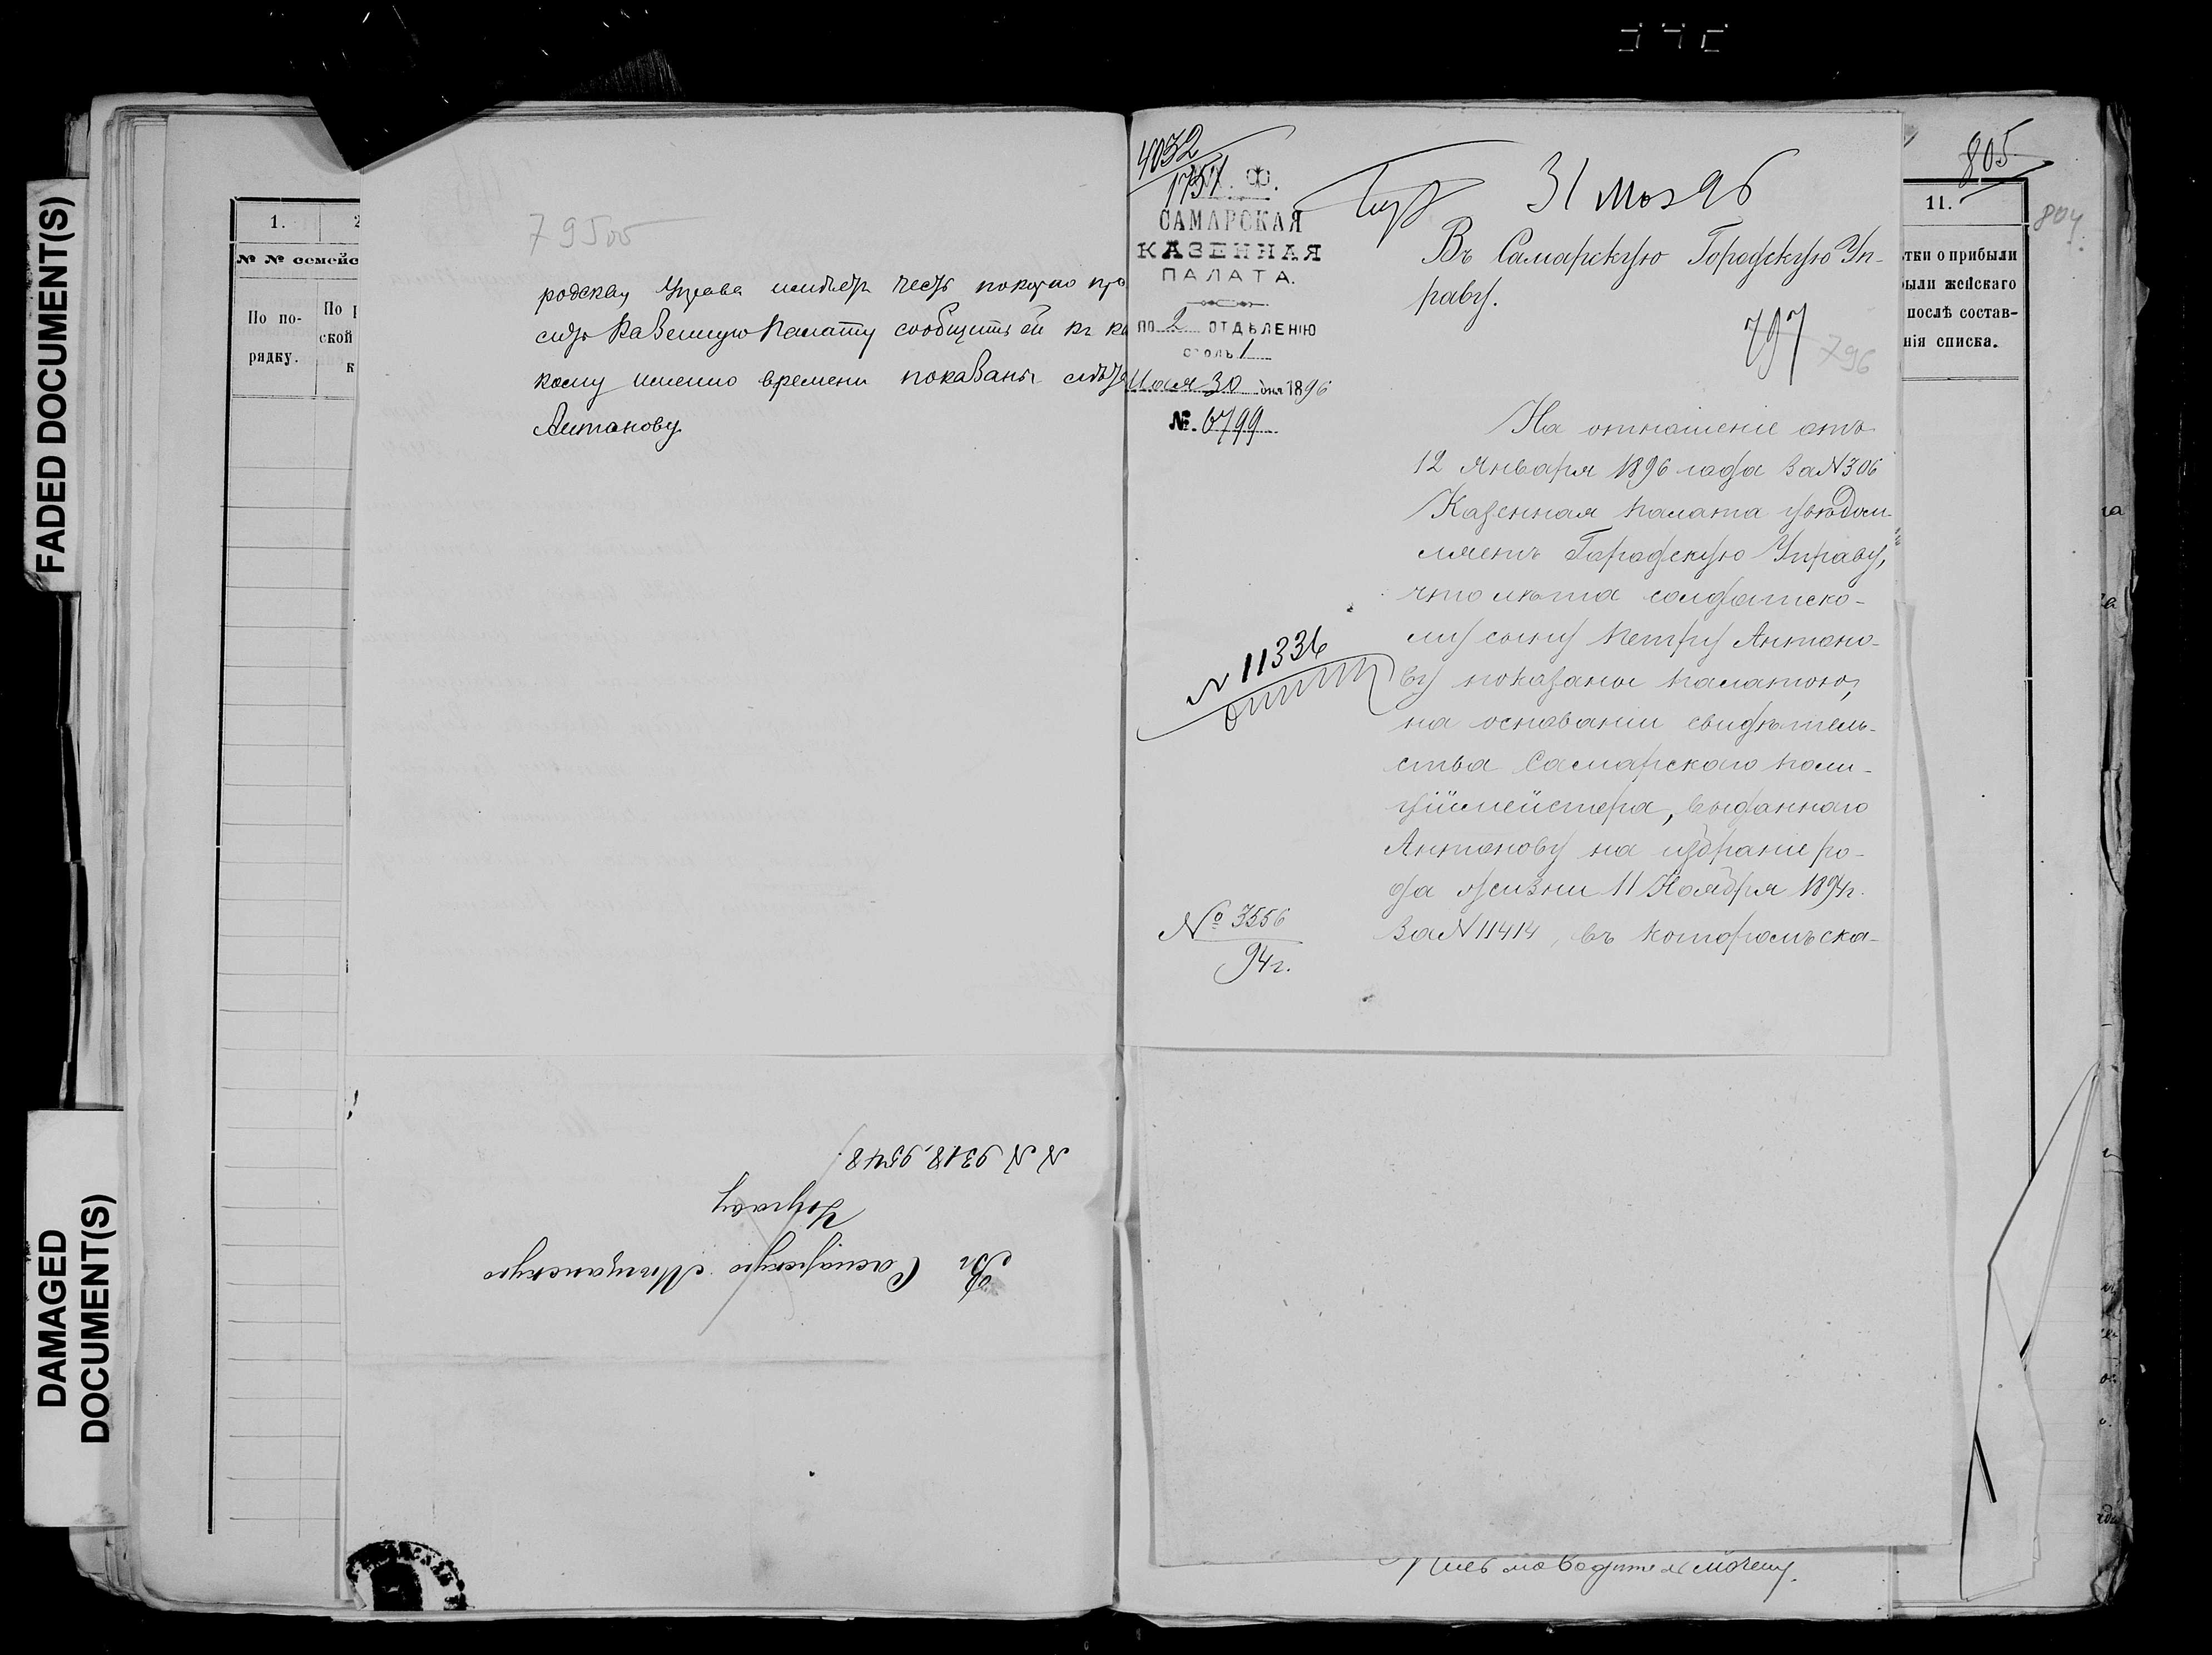 FADED DOCUMENT(S)
DAMAGED
DOCUMENT(S)
1.
№ № семейс
По по-
рядку.
По р
ской
к
795об
родская Управа имѣетъ честь покорно про
ситъ Казенную Палату сообщить ей къ ка
кому именно времени показаны лѣта
Антонову
N N 9318, 9548
Управу
Въ Самарскую Мѣщанскую
4032
1751
М. Ф.
САМАРСКАЯ
КАЗЕННАЯ
ПАЛАТА.
ПО 2 ОТДѢЛЕНІЮ
столъ 1
Мая 30 дня 1896
№. 6799
31 Мая 96
Въ Самарскую Городскую Уп-
раву.
797
796
На отношеніе отъ
12 Января 1896 года за N 306
Казенная Палата увѣдом-
ляетъ Городскую Управу,
что лѣта солдатско-
му сыну Петру Антоно-
ву показаны Палатою,
на основаніи свидѣтель-
ства Самарскаго Поли-
ційместера, выданнаго
Антонову на избраніе ро-
да жизни 11 Ноября 1894г.
за N 11414, въ которомъ ска-
N 11336
№ 3556
94г.
805
804
11.
тки о прибыли
были женскаго
послѣ состав-
нія списка.
Письмоводитель